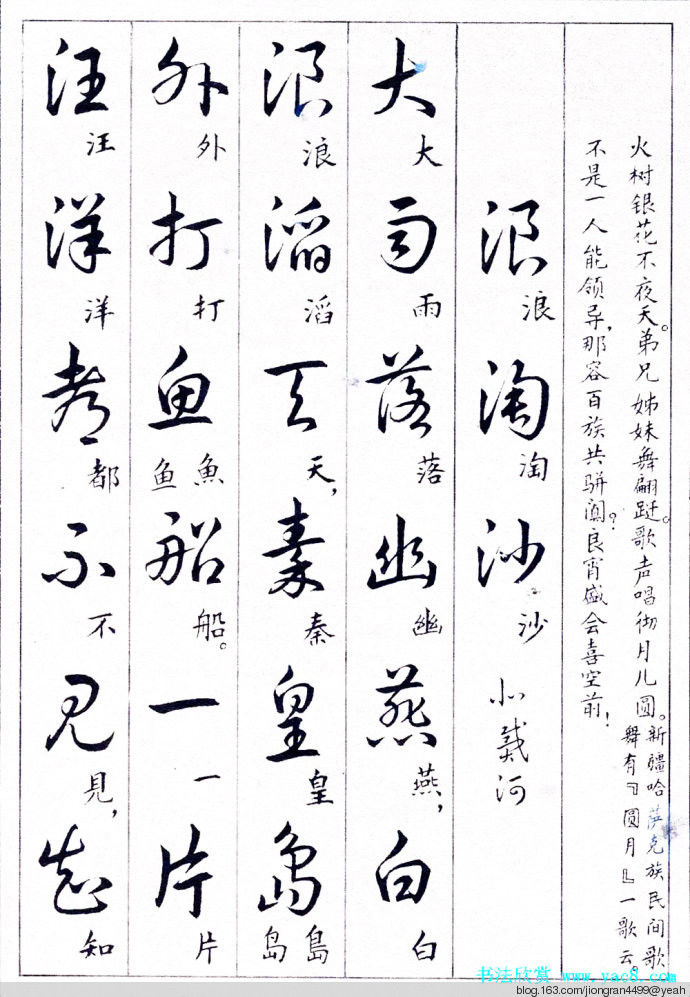 火树银花不夜天。弟兄姊妹舞翩跹。歌声唱彻月儿圆。
新疆哈萨克族民间歌
舞有『圆月』一歌云。
不是一人能领导,那容百族共骈阗?良宵盛会喜空前!
浪淘沙 北戴河
浪淘沙
大雨落幽燕白
大雨落幽燕,白
浪滔天秦皇岛
浪滔天,秦皇島岛
外打鱼船一片
外打魚鱼船。一片
汪洋都不见知
汪洋都不見,知
书法欣赏 www.yac8.com
blog.163.com/jiongran4499@yeah